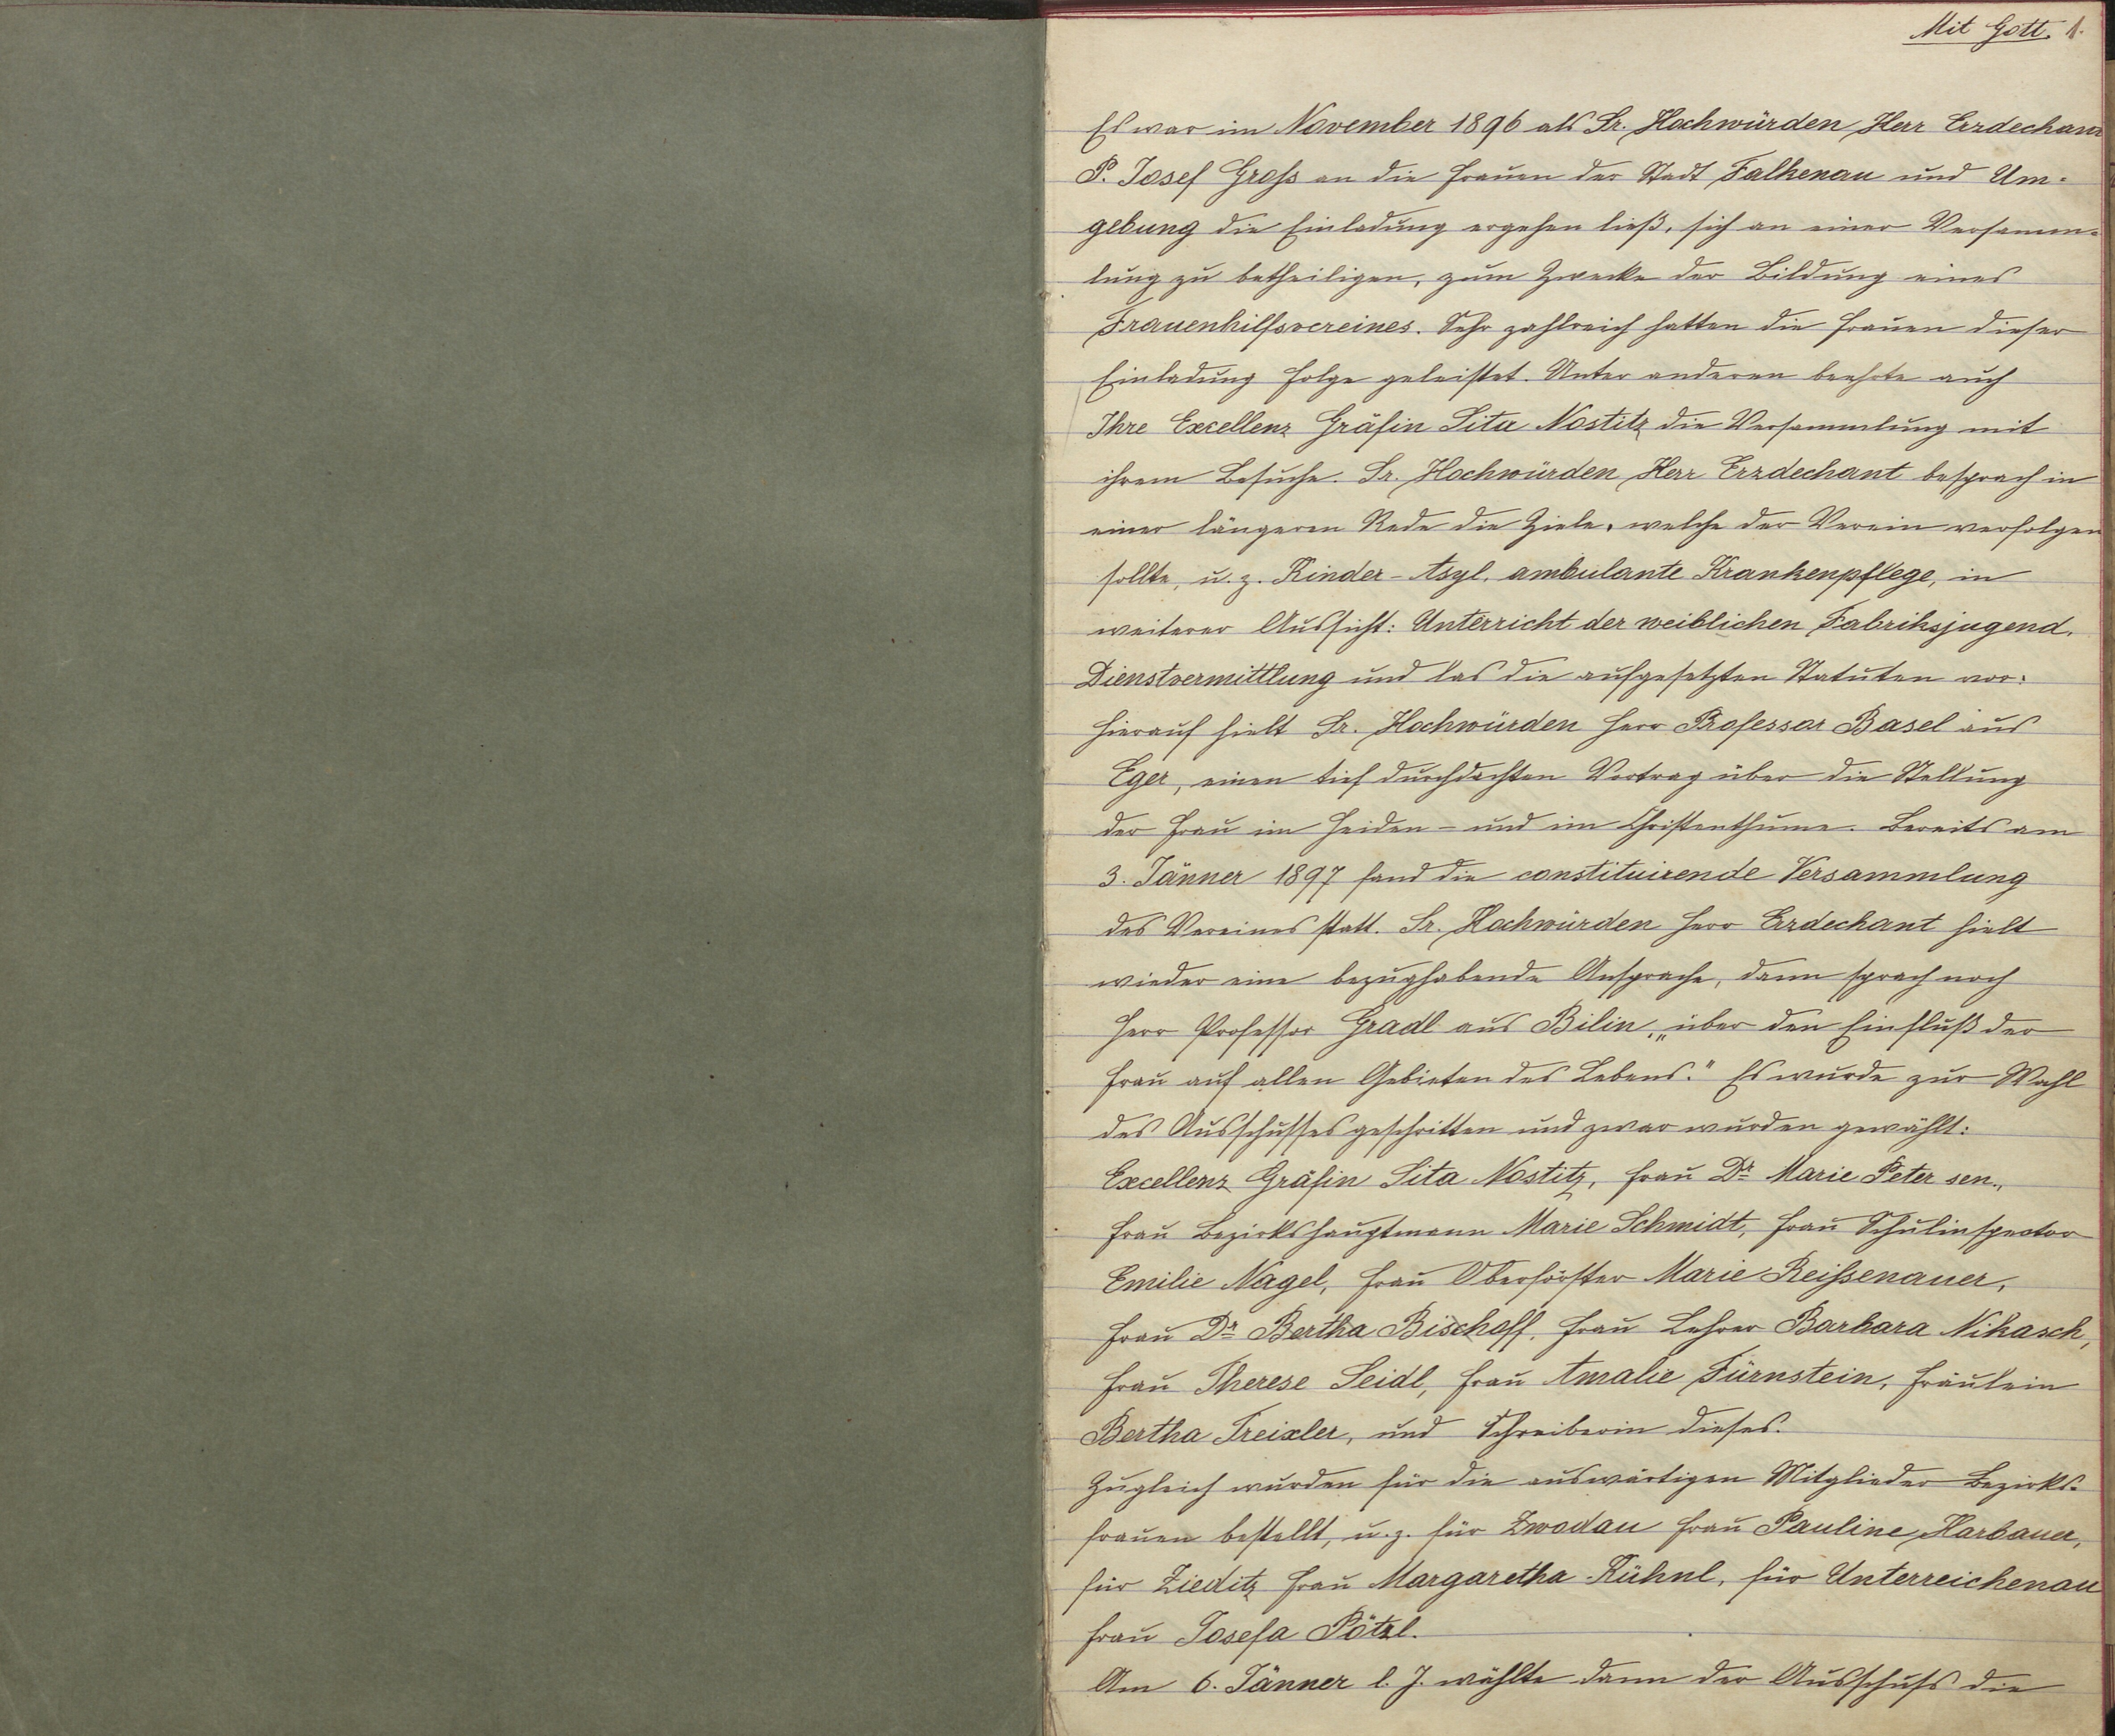 Mit Gott. 1.
Es war im November 1896 als Sr. Hochwürden Herr Erzdechant
P. Josef Groſs an die Frauen der Stadt Falkenau und Um-
gebung die Einladung ergehen ließ, sich an einer Versamm-
lung zu betheiligen, zum Zwecke der Bildung eines
Frauenhilfsvereines. Sehr zahlreich hatten die Frauen dieser
Einladung Folge geleistet. Unter anderen beehrte auch
Ihre Excellenz Gräfin Sita Nostitz die Versammlung mit
ihrem Besuche. Sr. Hochwürden Herr Erzdechant besprach in
einer längeren Rede die Ziele, welche der Verein verfolgen
sollte, u. z. Kinder-Asyl, ambulante Krankenpflege, in
weiterer Aussicht: Unterricht der weiblichen Fabriksjugend,
Dienstvermittlung und las die aufgesetzten Statuten vor:
hierauf hielt Sr. Hochwürden Herr Professor Basel aus
Eger, einen tief durchdachten Vortrag über die Stellung
der Frau im Heiden- und im Christenthume. Bereits am
3. Jänner 1897 fand die constituirende Versammlung
des Vereines statt. Sr. Hochwürden Herr Erzdechant hielt
wieder eine bezughabende Ansprache, dann sprach noch
Herr Professor Gradl aus Bilin, „über den Einfluß der
Frau auf allen Gebieten des Lebens." Es wurde zur Wahl
des Ausschusses geschritten und zwar wurden gewählt:
Excellenz Gräfin Sita Nostitz, Frau Dr Marie Peter sen.,
Frau Bezirkshauptmann Marie Schmidt, Frau Schulinspector
Emilie Nagel, Frau Oberförster Marie Reiſsenauer,
Frau Dr Bertha Bischoff, Frau Lehrer Barbara Nikasch,
Frau Therese Seidl, Frau Amalie Fürnstein, Fräulein
Bertha Treixler, und Schreiberin dieses.
Zugleich wurden für die auswärtigen Mitglieder Bezirks-
frauen bestellt, u. z. für Zwodau Frau Pauline Harbauer,
für Zieditz Frau Margaretha Kühnl, für Unterreichenau
Frau Josefa Pötzl.
Am 6. Jänner l. J. wählte dann der Ausschuſs die